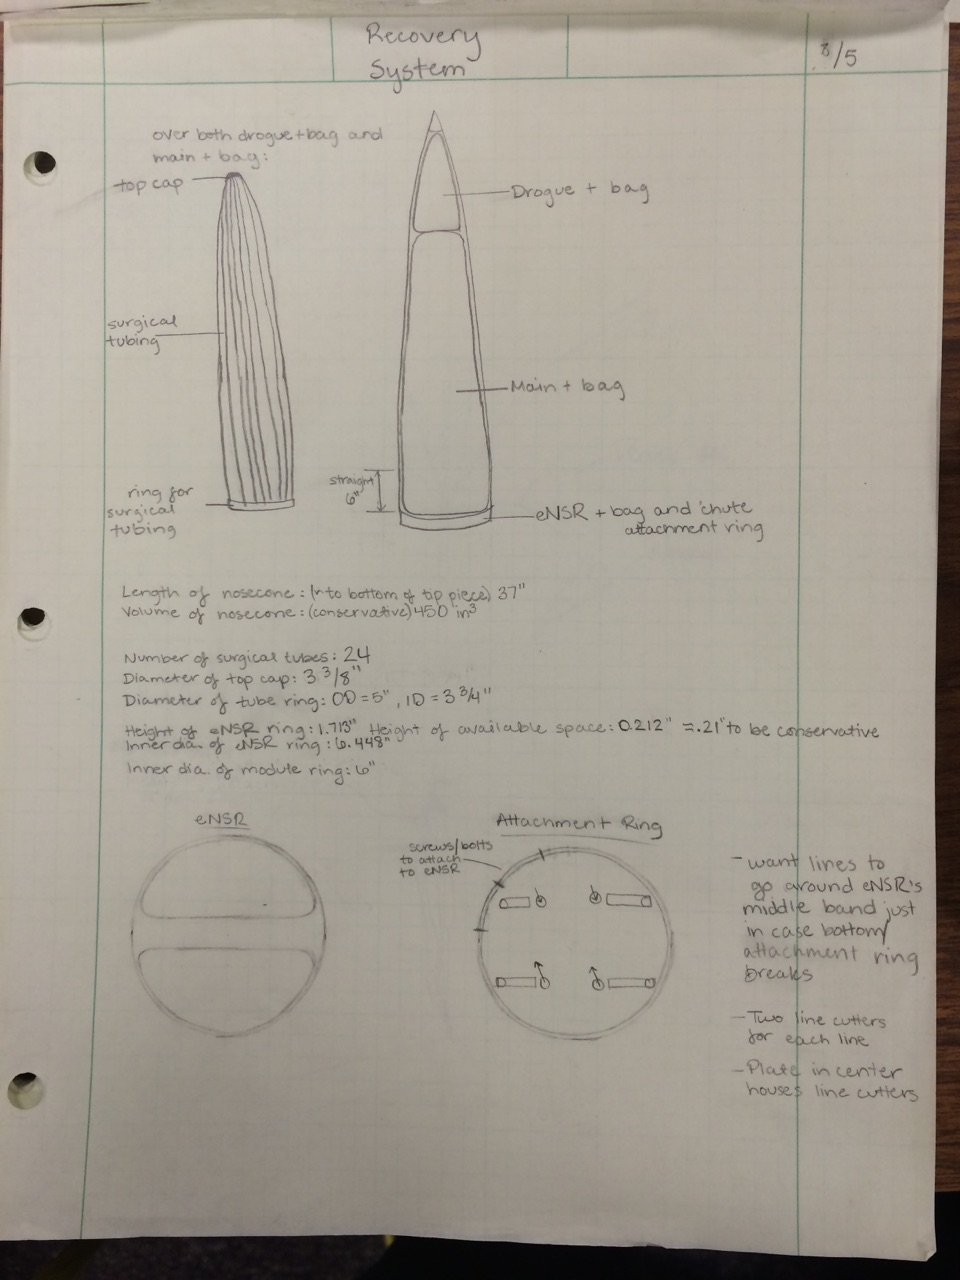 Recovery
System
8/5
over both drogue + bag and
main + bag:
top cap
Drogue + bag
surgical
tubing
Main + bag
straight
6"
ring for
surgical
tubing
eNSR + bag and 'chute
attachment ring
Length of nosecone: ( to bottom of top piece) 37"
Volume of nosecone: (conservative) 450 in³
Number of surgical tubes: 24
Diameter of top cap: 3 3/8"
Diameter of tube ring: OD = 5", ID = 3 3/4"
Height of eNSR ring: 1.713" Height of available space: 0.212" ≈ .21" to be conservative
Inner dia. of eNSR ring: 6.448"
Inner dia. of module ring: 6"
eNSR
Attachment Ring
screws/bolts
to attach
to eNSR
- want lines to
go around eNSR's
middle band just
in case bottom
attachment ring
breaks
- Two line cutters
for each line
- Plate in center
houses line cutters